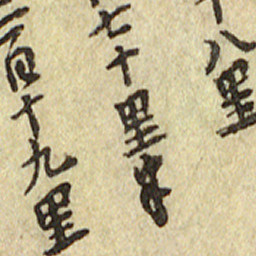 八里
七十里半
二百十九里